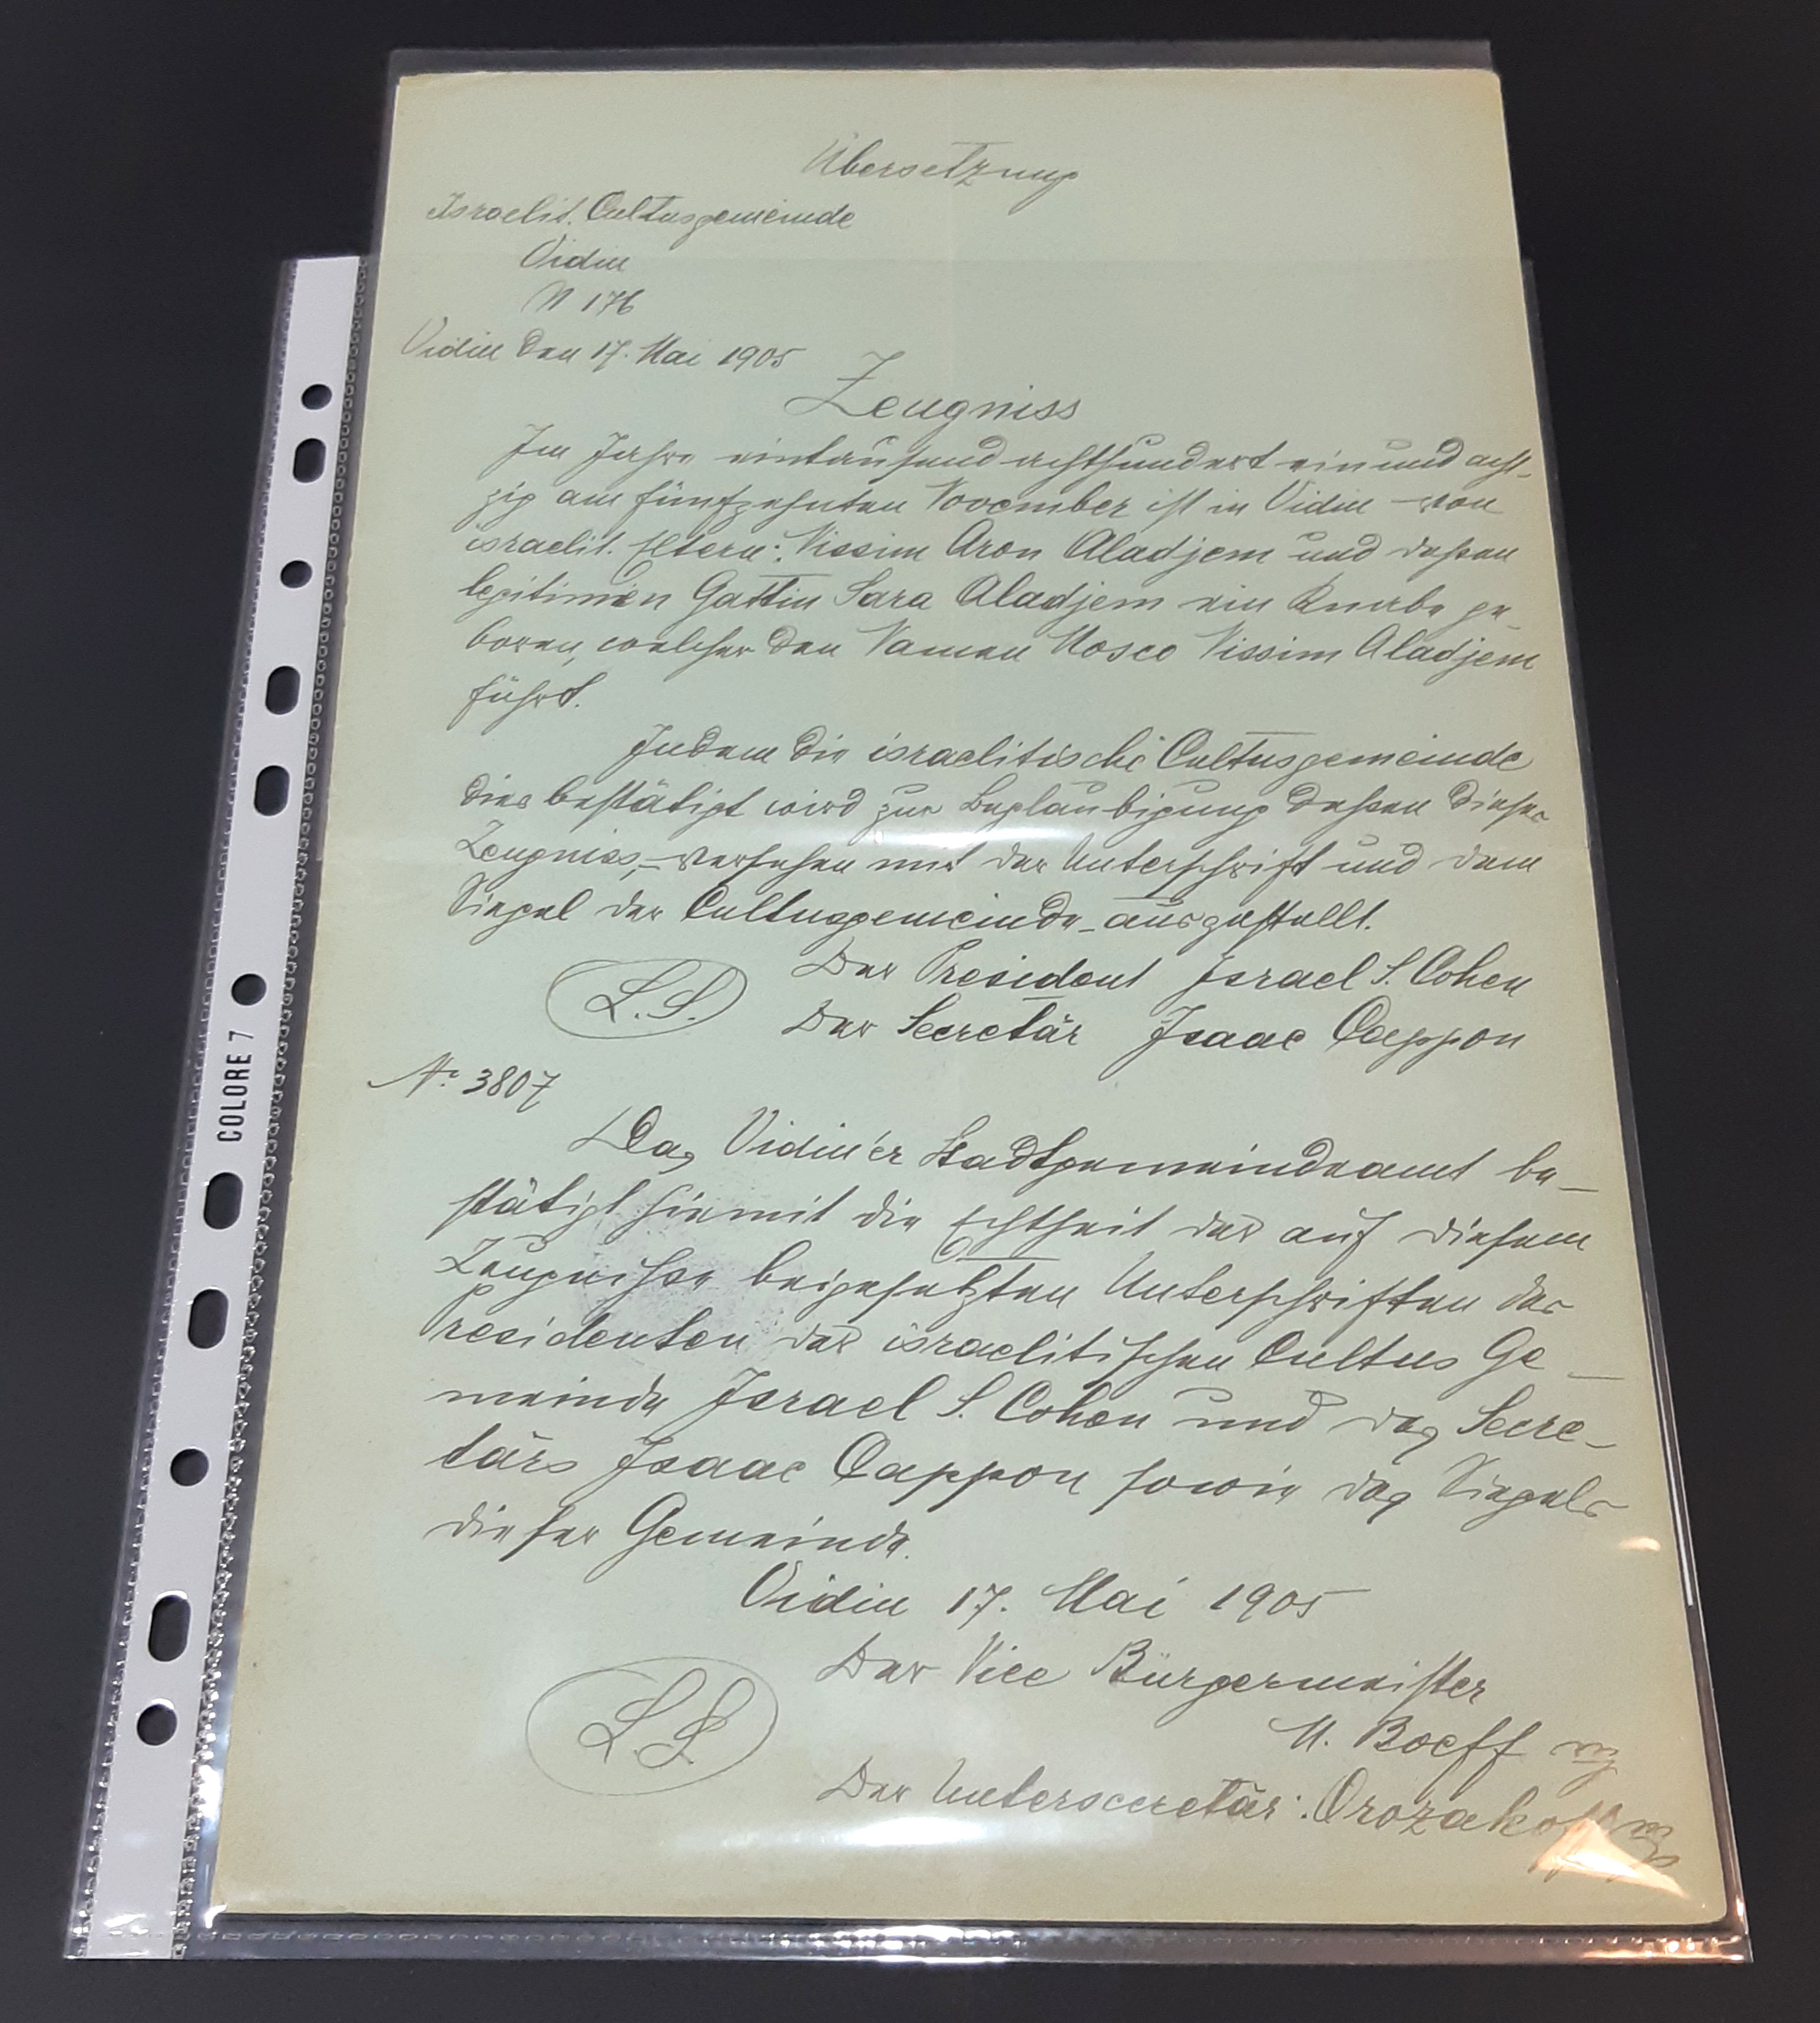 Übersetzung
Israelit. Cultusgemeinde
Vidin
N 176
Vidin den 17. Mai 1905
Zeugniss
Im Jahre eintausend achthundert ein und acht-
zig am fünfzehnten November ist in Vidin – von
israelit. Eltern: Nissim Aron Aladjem und dessen
legitimen Gattin Sara Aladjem ein Knabe ge-
boren, welcher den Namen Mosco Nissim Aladjem
führt.
Indem die israelitische Cultusgemeinde
dies bestätigt wird zur Beglaubigung dessen dieses
Zeugniss, – versehen mit der Unterschrift und dem
Siegel der Cultusgemeinde – ausgestellt.
Der President Israel S. Cohen
L.S.
Der Secretär Isaac Cappon
No. 3807
Das Vidin'er Stadtgemeindeamt be-
stätigt hiemit die Echtheit der auf diesem
Zeugnisse beigesetzten Unterschriften des
Presidenten der israelitischen Cultus Ge-
meinde Israel S. Cohen und des Secre-
tärs Isaac Cappon sowie des Siegels
dieser Gemeinde.
Vidin 17. Mai 1905
Der Vice Bürgermeister
L.S.
M. Boeff
Der Untersecretär: Orozakoff
COLORE 7